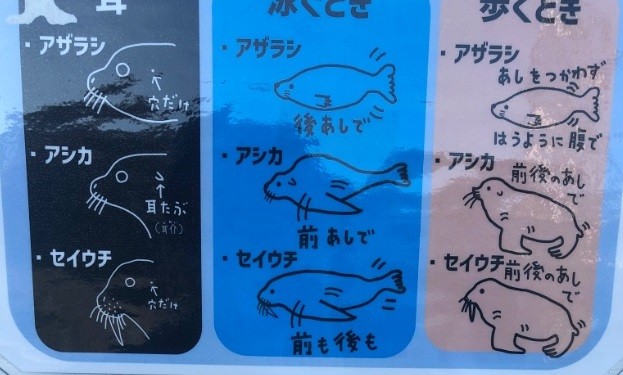 耳
・アザラシ
穴だけ
・アシカ
耳たぶ
(耳介)
・セイウチ
穴だけ
泳ぐとき
・アザラシ
後あしで
・アシカ
前あしで
・セイウチ
前も後も
歩くとき
・アザラシ
あしをつかわず
はうように腹で
・アシカ
前後のあし
で
・セイウチ
前後のあし
で